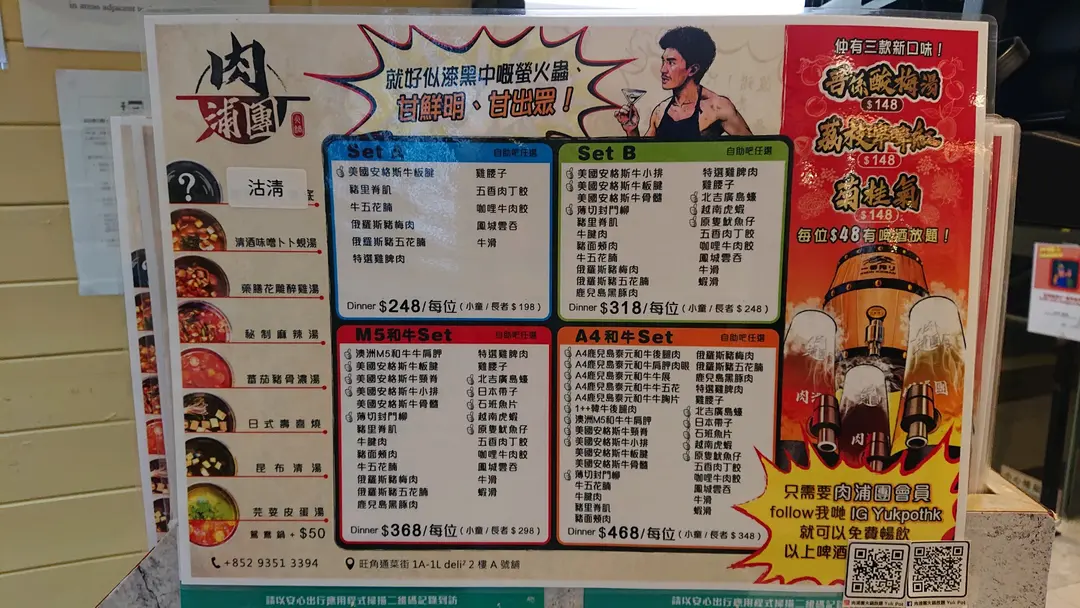 肉
浦團
就好似漆黑中嘅螢火蟲、
甘鮮明、甘出眾！
?
沽清
底
清酒味噌卜卜蜆湯
藥膳花雕醉雞湯
秘制麻辣湯
蕃茄豬骨濃湯
日式壽喜燒
昆布清湯
芫荽皮蛋湯
鴛鴦鍋 + $50
Set A 自助吧任選
美國安格斯牛板腱 雞腰子
豬里脊肌 五香肉丁餃
牛五花腩 咖哩牛肉餃
俄羅斯豬梅肉 鳳城雲吞
俄羅斯豬五花腩 牛滑
特選雞脾肉
Dinner $248/每位 (小童/長者$198)
Set B 自助吧任選
美國安格斯牛小排 特選雞脾肉
美國安格斯牛板腱 雞腰子
美國安格斯牛骨髓 北吉廣島蠔
薄切封門柳 越南虎蝦
豬里脊肌 原隻魷魚仔
牛腱肉 五香肉丁餃
豬面頰肉 咖哩牛肉餃
牛五花腩 鳳城雲吞
俄羅斯豬梅肉 牛滑
俄羅斯豬五花腩 蝦滑
鹿兒島黑豚肉
Dinner $318/每位 (小童/長者$248)
M5和牛Set 自助吧任選
澳洲M5和牛牛肩胛 特選雞脾肉
美國安格斯牛板腱 雞腰子
美國安格斯牛頸脊 北吉廣島蠔
美國安格斯牛小排 日本帶子
美國安格斯牛骨髓 石班魚片
薄切封門柳 越南虎蝦
豬里脊肌 原隻魷魚仔
牛腱肉 五香肉丁餃
豬面頰肉 咖哩牛肉餃
牛五花腩 鳳城雲吞
俄羅斯豬梅肉 牛滑
俄羅斯豬五花腩 蝦滑
鹿兒島黑豚肉
Dinner $368/每位 (小童/長者$298)
A4和牛Set 自助吧任選
A4鹿兒島泰元和牛後腿肉 俄羅斯豬梅肉
A4鹿兒島泰元和牛肩胛肉眼 俄羅斯豬五花腩
A4鹿兒島泰元和牛牛展 鹿兒島黑豚肉
A4鹿兒島泰元和牛牛五花 特選雞脾肉
A4鹿兒島泰元和牛胸片 雞腰子
1++韓牛後腿肉 北吉廣島蠔
澳洲M5和牛牛肩胛 日本帶子
美國安格斯牛頸脊 石班魚片
美國安格斯牛小排 越南虎蝦
美國安格斯牛板腱 原隻魷魚仔
美國安格斯牛骨髓 五香肉丁餃
薄切封門柳 咖哩牛肉餃
牛五花腩 鳳城雲吞
牛腱肉 牛滑
豬里脊肌 蝦滑
豬面頰肉
Dinner $468/每位 (小童/長者$348)
仲有三款新口味！
$148
$148
$148
每位$48有啤酒放題！
一番搾り
肉
團
肉
只需要肉浦團會員
follow我哋 IG Yukpothk
就可以免費暢飲
以上啤酒
+852 9351 3394
旺角通菜街 1A-1L deli² 2 樓 A 號舖
請以安心出行應用程式掃描二維碼記錄到訪
請以安心出行應用程式掃描二維碼記